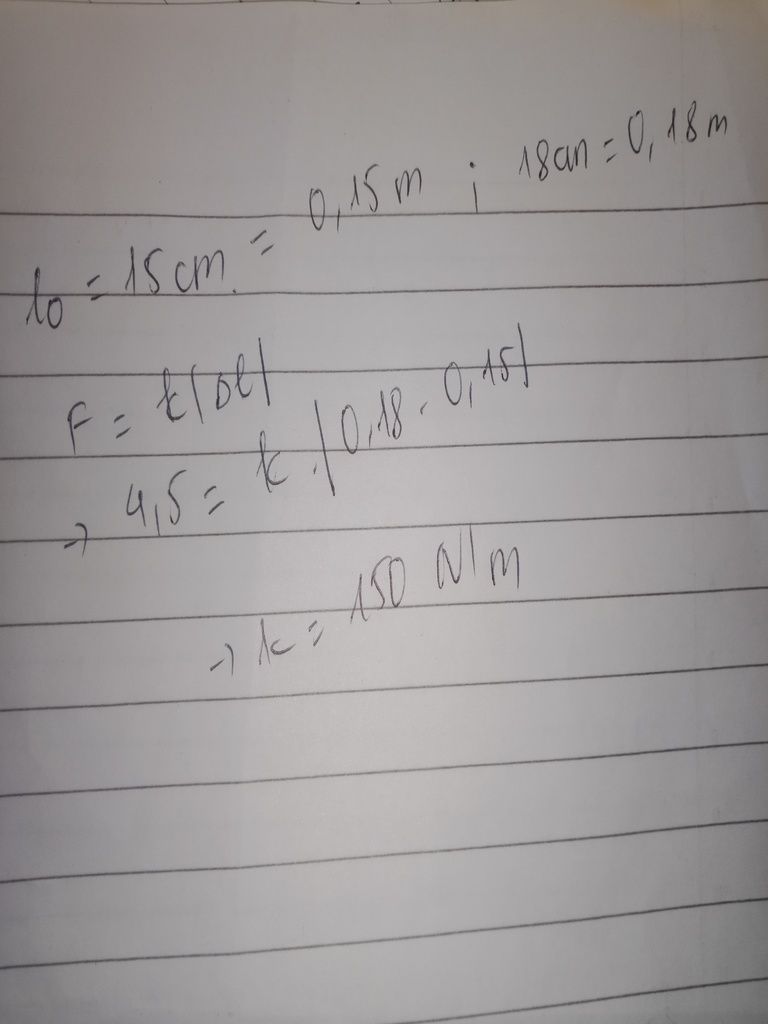 l₀ = 15 cm = 0,15 m ; 18cm = 0,18 m
F = k|Δl|
→ 4,5 = k . |0,18 - 0,15|
→ k = 150 N/m